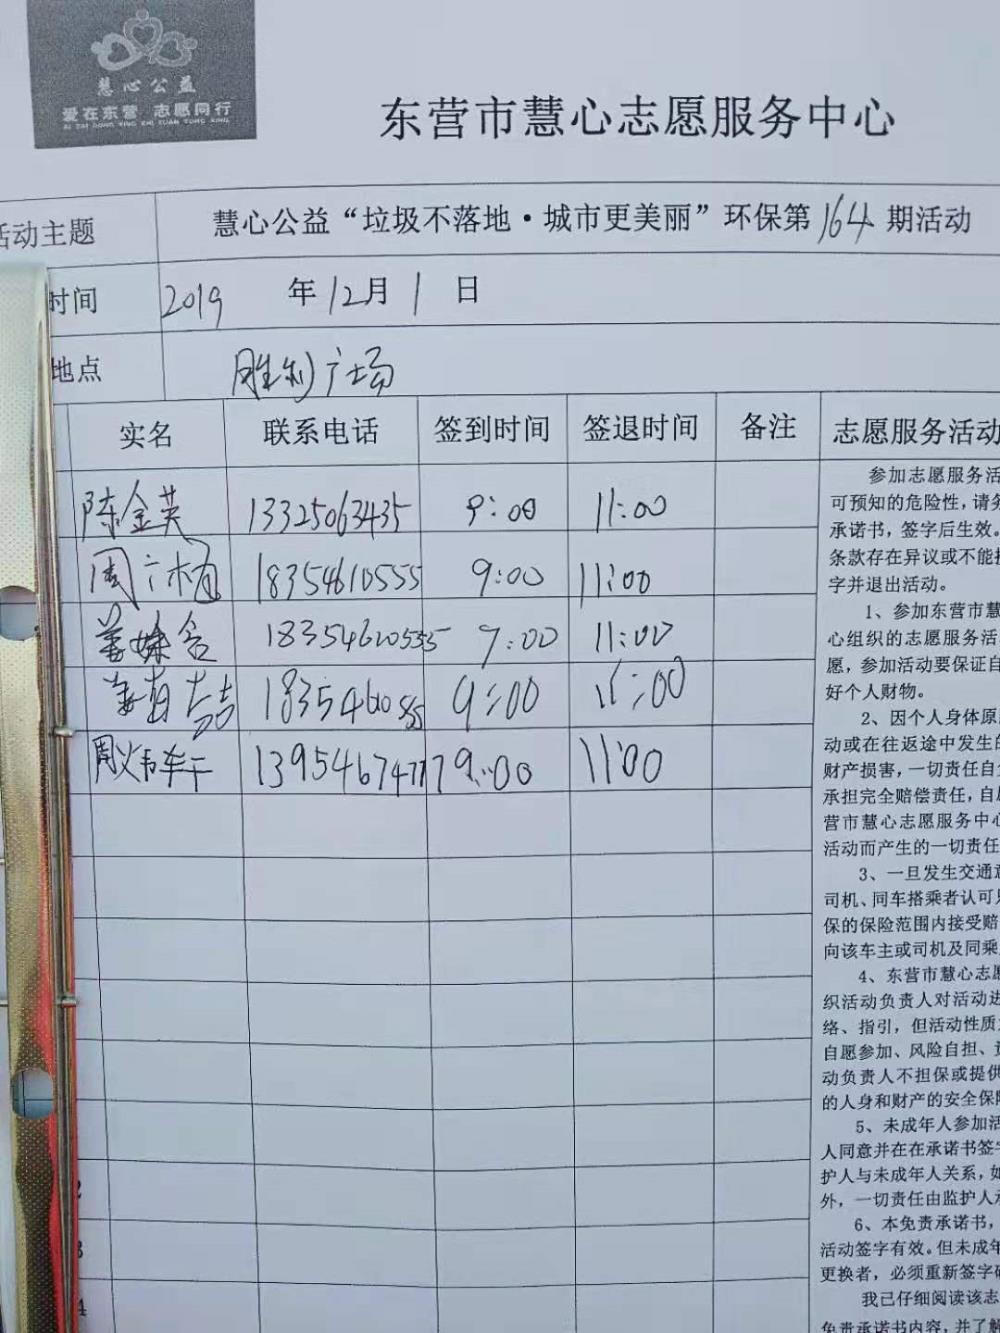 慧心公益
爱在东营 志愿同行
AI ZAI DONG YING ZHI YUAN TONG XING
东营市慧心志愿服务中心
活动主题 慧心公益“垃圾不落地·城市更美丽”环保第164期活动
时间 2019 年 12月 1 日
地点 胜利广场
实名 联系电话 签到时间 签退时间 备注 志愿服务活动
陈金英 13325063435 9:00 11:00
周 18354610555 9:00 11:00
姜 18354610555 9:00 11:00
姜 9:00 11:00
周 9:00 11:00
参加志愿服务活
可预知的危险性,请务
承诺书,签字后生效。
条款存在异议或不能接
字并退出活动。
1、参加东营市慧
心组织的志愿服务活
愿,参加活动要保证自
好个人财物。
2、因个人身体原
动或在往返途中发生的
财产损害,一切责任自
承担完全赔偿责任,自愿
营市慧心志愿服务中心
活动而产生的一切责任
3、一旦发生交通意
司机、同车搭乘者认可
保的保险范围内接受赔
向该车主或司机及同乘
4、东营市慧心志愿
织活动负责人对活动进
络、指引,但活动性质
自愿参加、风险自担、
动负责人不担保或提供
的人身和财产的安全保
5、未成年人参加活
人同意并在在承诺书签字
护人与未成年人关系,如
外,一切责任由监护人
6、本免责承诺书,
活动签字有效。但未成年
更换者,必须重新签字
我已仔细阅读该志
免责承诺书内容,并了解